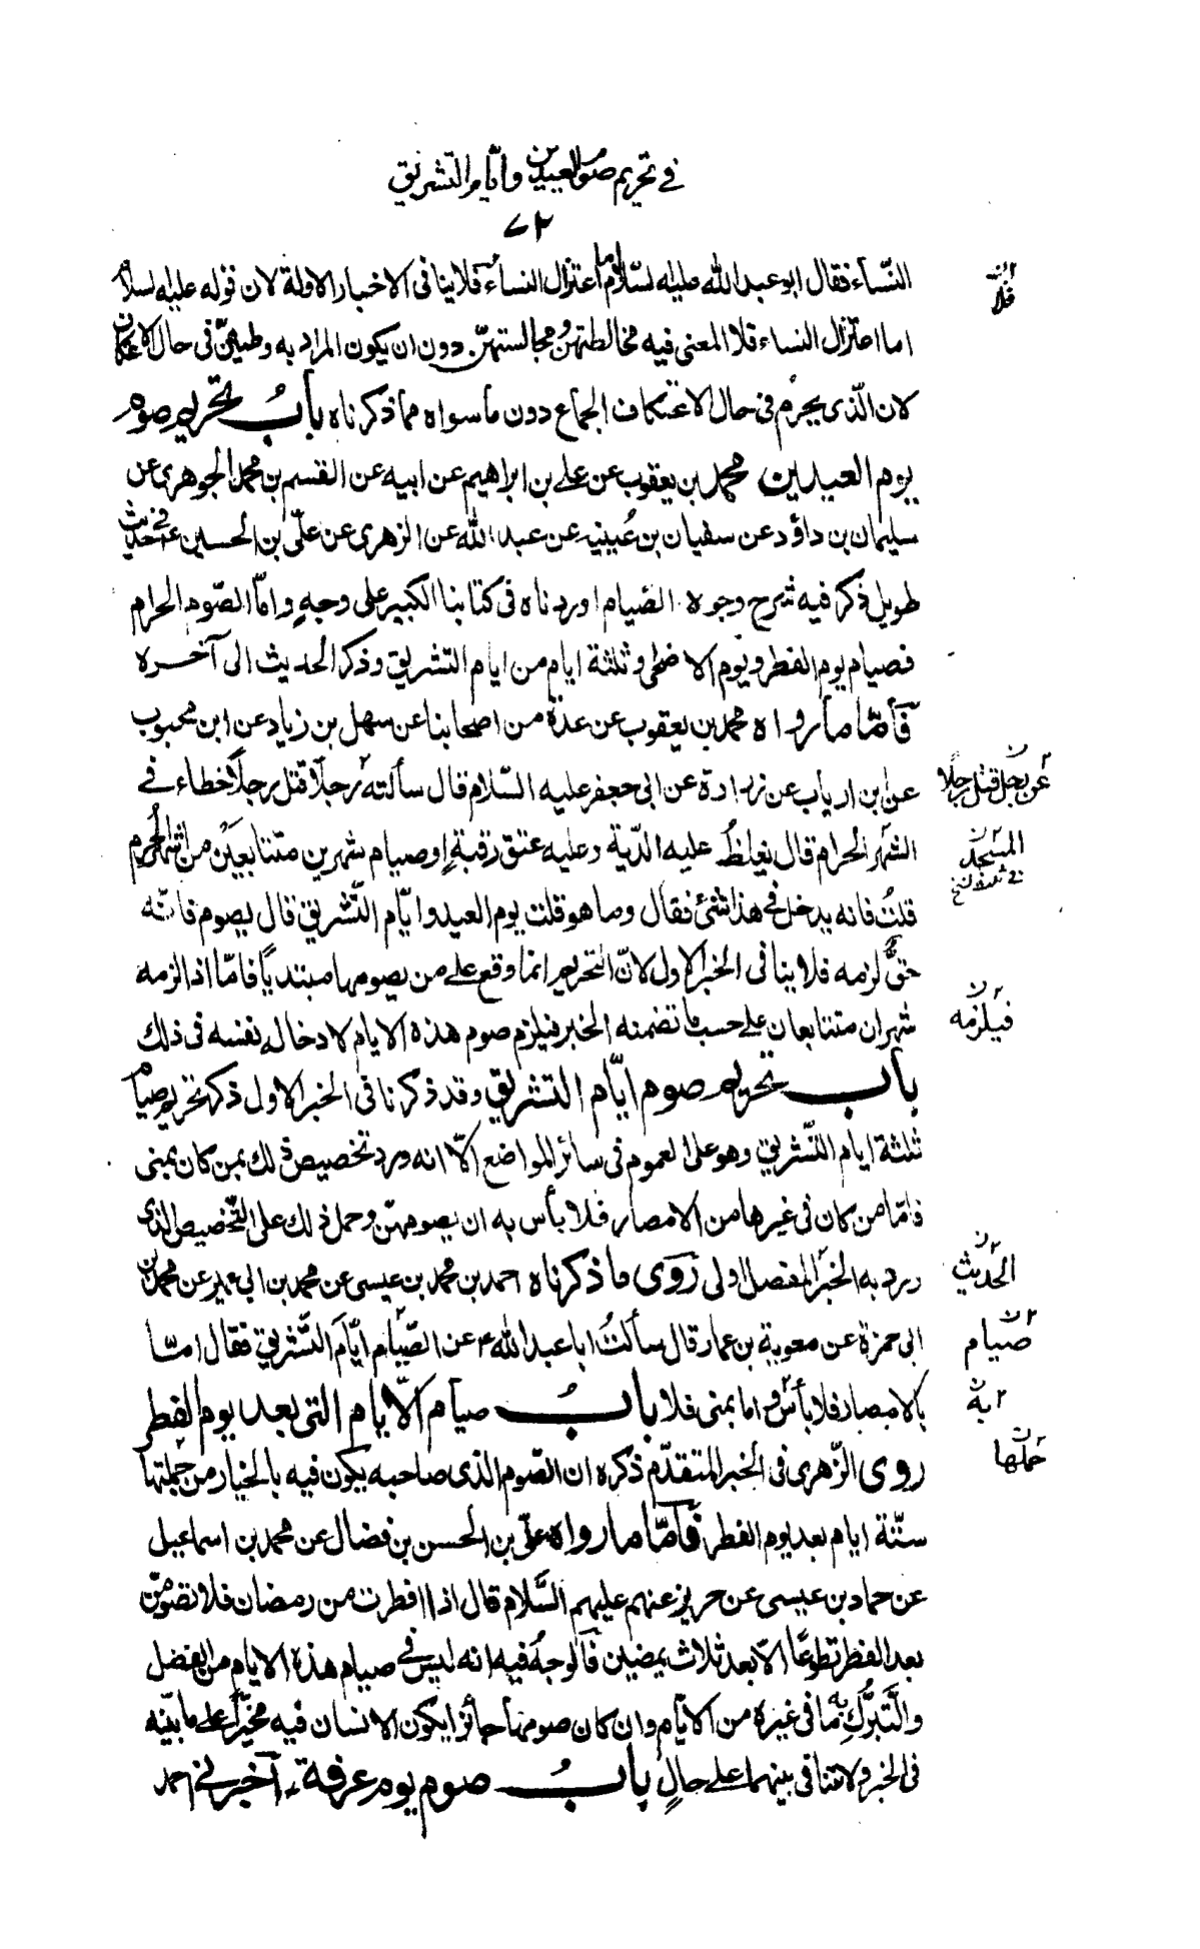 في تحريم صوم العيدين وايّام التّشريق
٧٢
النّساء فقال ابو عبد الله عليه السّلام اما اعتزال النساء فلا ينافى الاخبار الاولة لان قوله عليه السلام
اما اعتزال النساء فلا المعنى فيه مخالطتهنّ ومجالستهنّ دون ان يكون المراد به وطيهنّ فى حال الاعتكاف
لان الّذى يحرم فى حال الاعتكاف الجماع دون ما سواه مما ذكرناه بابُ تحريم صوم
يوم العيدين محمد بن يعقوب عن على بن ابراهيم عن ابيه عن القسم بن محمد الجوهرى عن
سليمان بن داؤد عن سفيان بن عُيينه عن عبد الله عن الزهرى عن علىّ بن الحسين ع فى حديث
طويل ذكر فيه شرح وجوه الصّيام اوردناه فى كتابنا الكبير على وجهٍ وامّا الصّوم الحرام
فصيام يوم الفطر ويوم الاضحى وثلثة ايام من ايام التشريق وذكر الحديث الى آخره
فأمّا ما رواه محمد بن يعقوب عن عدة من اصحابنا عن سهل بن زياد عن ابن محبوب
عن ابن ارياب عن زرارة عن ابى جعفر عليه السّلام قال سألته رجلًا قتل رجلًا خطاء فى
عن رجل قتل رجلًا
الشهر الحرام قال يغلظُ عليه الدّية وعليه عتق رقبةٍ او صيام شهرين متتابعَيْن من اشهر الحرم
قلتُ فانه يدخل فى هذا شئ فقال وما هو قلت يوم العيد وايّام التّشريق قال يصوم فانّه
حقٌّ لزمه فلا ينافى الخبر الاول لانّ التحريم انما وقع على من يصومها مبتديًا فامّا اذا لزمه
شهران متتابعان على حسب ما تضمنه الخبر فيلزم صوم هذه الايام لادخاله نفسه فى ذلك
فيلزمه
باب تحريم صوم ايّام التشريق وقد ذكرنا فى الخبر الاول ذكر تحريم صيام
ثلثة ايام التّشريق وهو على العموم فى سائر المواضع الّا انه ورد تخصيص ذلك بمن كان بمنى
فامّا من كان فى غيرها من الامصار فلا بأس به ان يصومهنّ وحمل ذلك على التّخصيص الذى
ورد به الخبر المفصل اولى رَوَى ما ذكرناه احمد بن محمد بن عيسى عن محمد بن ابى عمير عن محمد بن
الحديث
ابى حمزة عن معوية بن عمار قال سألتُ ابا عبد الله ع عن الصّيام ايّام التّشريق فقال امّا
صيام
بالامصار فلا بأس واما بمنى فلا بابُ صيام الايام التى بعد يوم الفطر
به
روى الزّهرى فى الخبر المتقدّم ذكره ان الصّوم الذى صاحبه يكون فيه بالخيار من جملتها
جملها
ستّة ايام بعد يوم الفطر فأمّا ما رواه علىّ بن الحسن بن فضال عن محمد بن اسماعيل
عن حماد بن عيسى عن حريز عنهم عليهم السَّلام قال اذا افطرت من رمضان فلا تصومنّ
بعد الفطر تطوّعًا الّا بعد ثلاث يمضين فالوجهُ فيه انه ليس فى صيام هذه الايام من الفضل
والتّبرّك به ما فى غيره من الايّام وان كان صومها جائزا يكون الانسان فيه مخيّرًا على ما بيّنه
فى الخبر ولا تنافى بينهما على حالٍ بابُ صوم يوم عرفة آخبرنى احمد